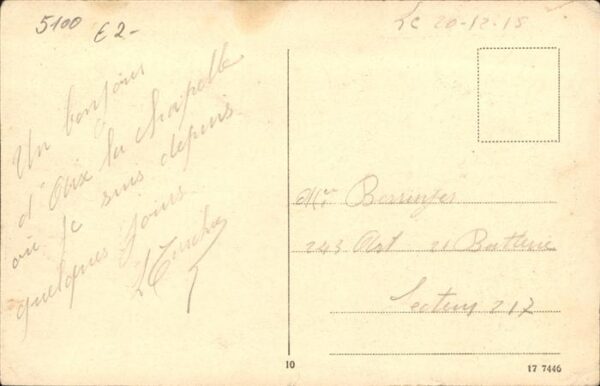 5100 £2-
Le 20-12-18
Un bonjour
d'Aix la Chapelle
où je suis depuis
quelques jours
Mr
243 Art 21 Batterie
Secteur 217
10
17 7446